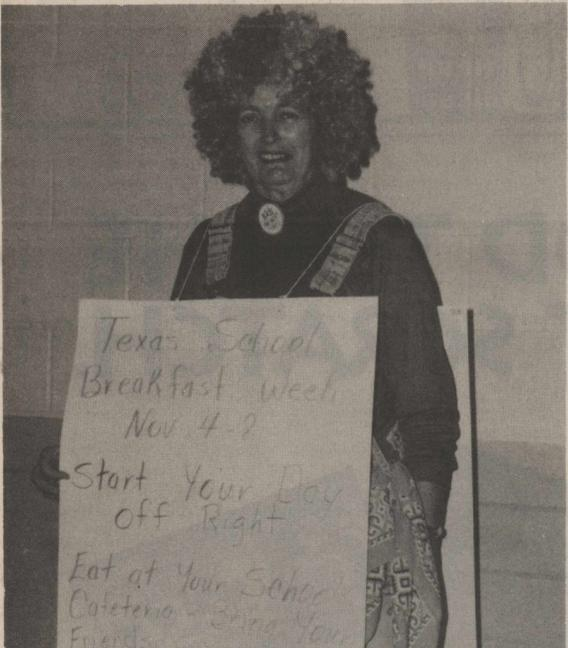 Texas School
Breakfast Week
Nov. 4-8
Start Your Day
Off Right
Eat at Your School
Cafeteria - Bring Your
Friends